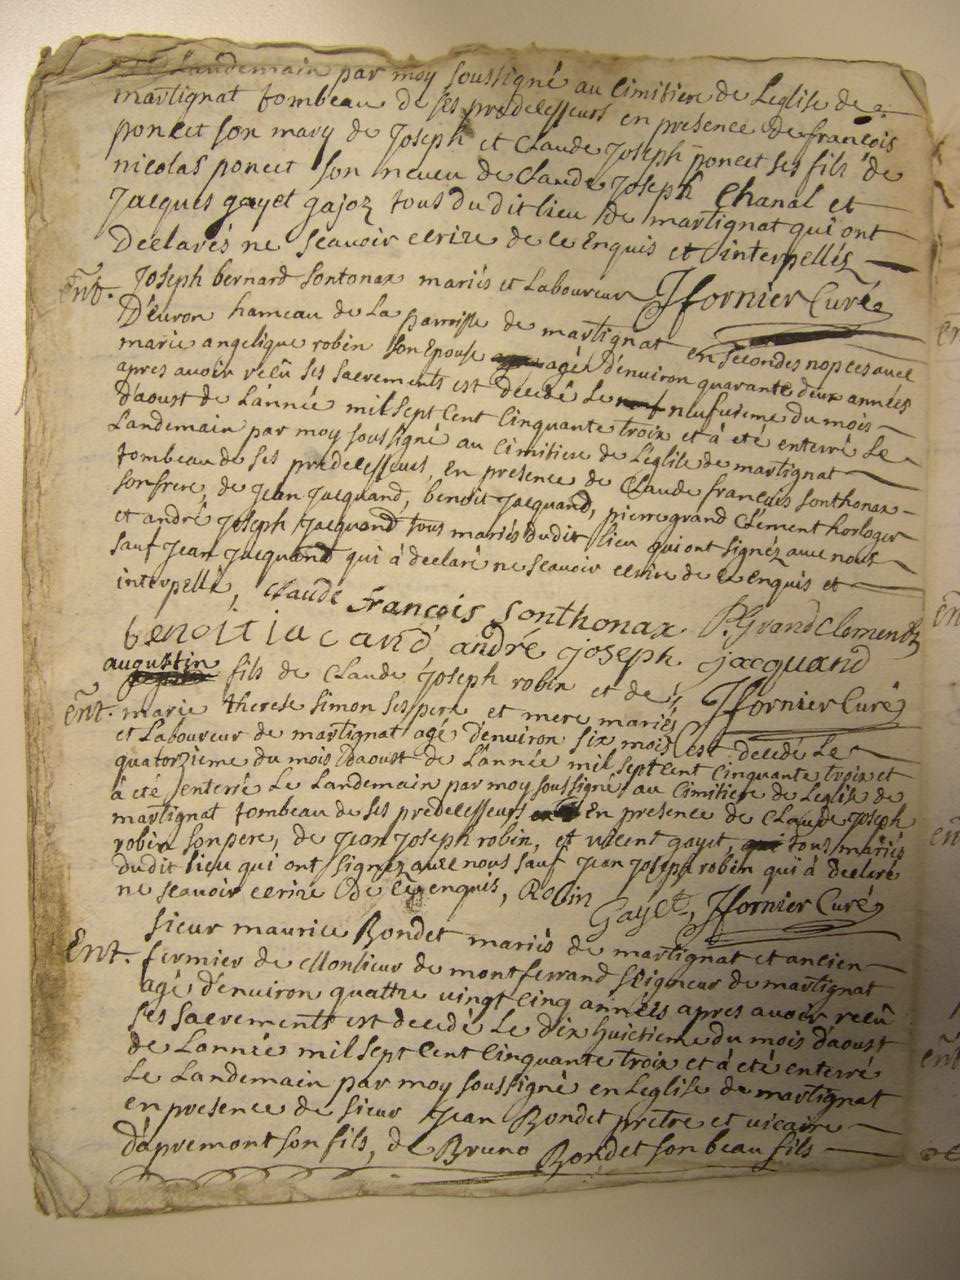 Landemain par moy soussigné au cimitiere de Leglise de
martignat tombeau de ses predecesseurs en presence de françois
poncet son mary de Joseph et Claude Joseph poncet ses fils de
nicolas poncet son neveu de Claude Joseph Chanal et
Jacques gayet gajoz tous dudit lieu de martignat qui ont
Declarés ne scavoir ecrire de ce Enquis et interpellés
JJfornier Curé
Ent. Joseph bernard Sontonax mariés et Laboureur
D'évron hameau de La parroisse de martignat en secondes nopces avec
marie angelique robin son Epouse agé D'environ quarante deux années
apres avoir reçû ses sacrements est decedé Le neufvieme du mois
D'aoust de L'année mil sept cent cinquante trois et à été enterré Le
Landemain par moy soussigné au cimitiere de Leglise de martignat
tombeau de ses predecesseurs, en presence de Claude françois Sonthonax
son frere, de Jean Jacquand, benoit Jacquand, pierre grand Clément horloger
et andré Joseph Jacquand tous mariés dudit lieu qui ont signéz avec nous
sauf Jean Jacquand qui à declaré ne scavoir ecrire de ce enquis et
interpellé, Claude François Sonthonax P. Grand Clement
benoit iacand andré joseph jacquand
JJfornier Curé
Ent. augustin fils de Claude Joseph robin et de
marie therese Simon ses pere et mere mariés
et Laboureur de martignat agé D'environ six mois est decedé Le
quatorzieme du mois D'aoust de L'année mil sept cent cinquante trois et
à été enterré Le Landemain par moy soussigné au Cimitiere de Leglise de
martignat tombeau de ses predecesseurs En presence de Claude Joseph
robin son pere, de Jean Joseph robin, et vincent gayet, tous mariés
dudit lieu qui ont signéz avec nous sauf Jean Joseph robin qui à declaré
ne scavoir ecrire de ce enquis, Robin
Gayet, JJfornier Curé
Ent. sieur maurice Bondet mariés de martignat et ancien
fermier de Monsieur de montferrand Seigneur de martignat
agé d'environ quattre vingt cinq années apres avoir reçû
ses sacrements est decedé Le dix huictieme du mois D'aoust
de L'année mil sept cent cinquante trois et à été enterré
Le Landemain par moy soussigné en Leglise de martignat
en presence de sieur Jean Bondet prêtre et vicaire
D'apremont son fils, de Bruno Bondet son beau fils